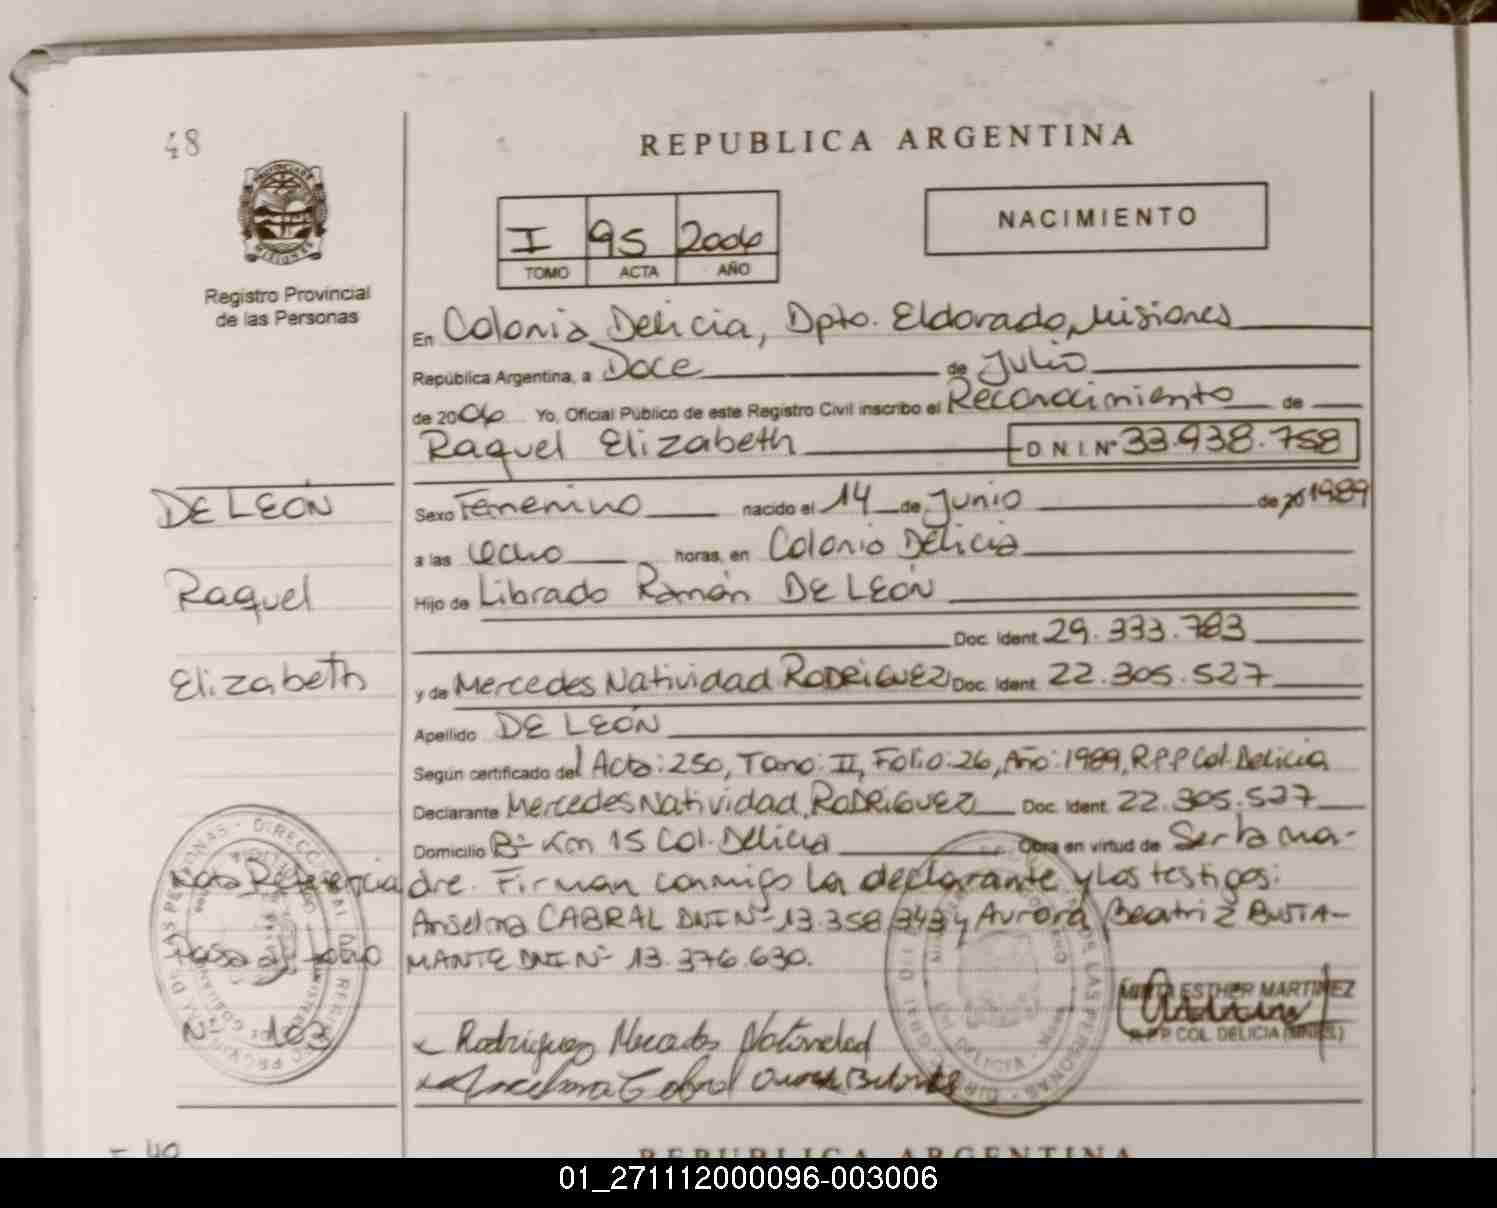 48
REPUBLICA ARGENTINA
I 95 2006
TOMO ACTA AÑO
NACIMIENTO
Registro Provincial
de las Personas
En Colonia Delicia, Dpto. Eldorado, Misiones
República Argentina, a Doce de Julio
de 2006 Yo, Oficial Público de este Registro Civil inscribo el Reconocimiento de
Raquel Elizabeth D.N.I.Nº 33.938.758
DE LEÓN
Raquel
Elizabeth
Sexo Femenino nacido el 14 de Junio de 1989
a las ocho horas, en Colonia Delicia
Hijo de Librado Ramón DE LEÓN
Doc. Ident. 29.333.783
y de Mercedes Natividad RODRIGUEZ Doc. Ident. 22.305.527
Apellido DE LEÓN
Según certificado del Acta: 250, Tomo: II, Folio: 26, Año: 1989, R.P.P Col. Delicia
Declarante Mercedes Natividad, RODRIGUEZ Doc. Ident. 22.305.527
Domicilio Bº Km 15 Col. Delicia Obra en virtud de Ser la ma-
dre. Firman conmigo la declarante y los testigos:
Anselma CABRAL DNI Nº 13.358.343 y Aurora Beatriz BUSTA-
MANTE DNI Nº 13.376.630.
Nota Referencia
Pasa al folio
Nº 103
MIRTA ESTHER MARTINEZ
R.P.P. COL. DELICIA
Rodriguez Mercedes Natividad
REPUBLICA ARGENTINA
01_271112000096-003006